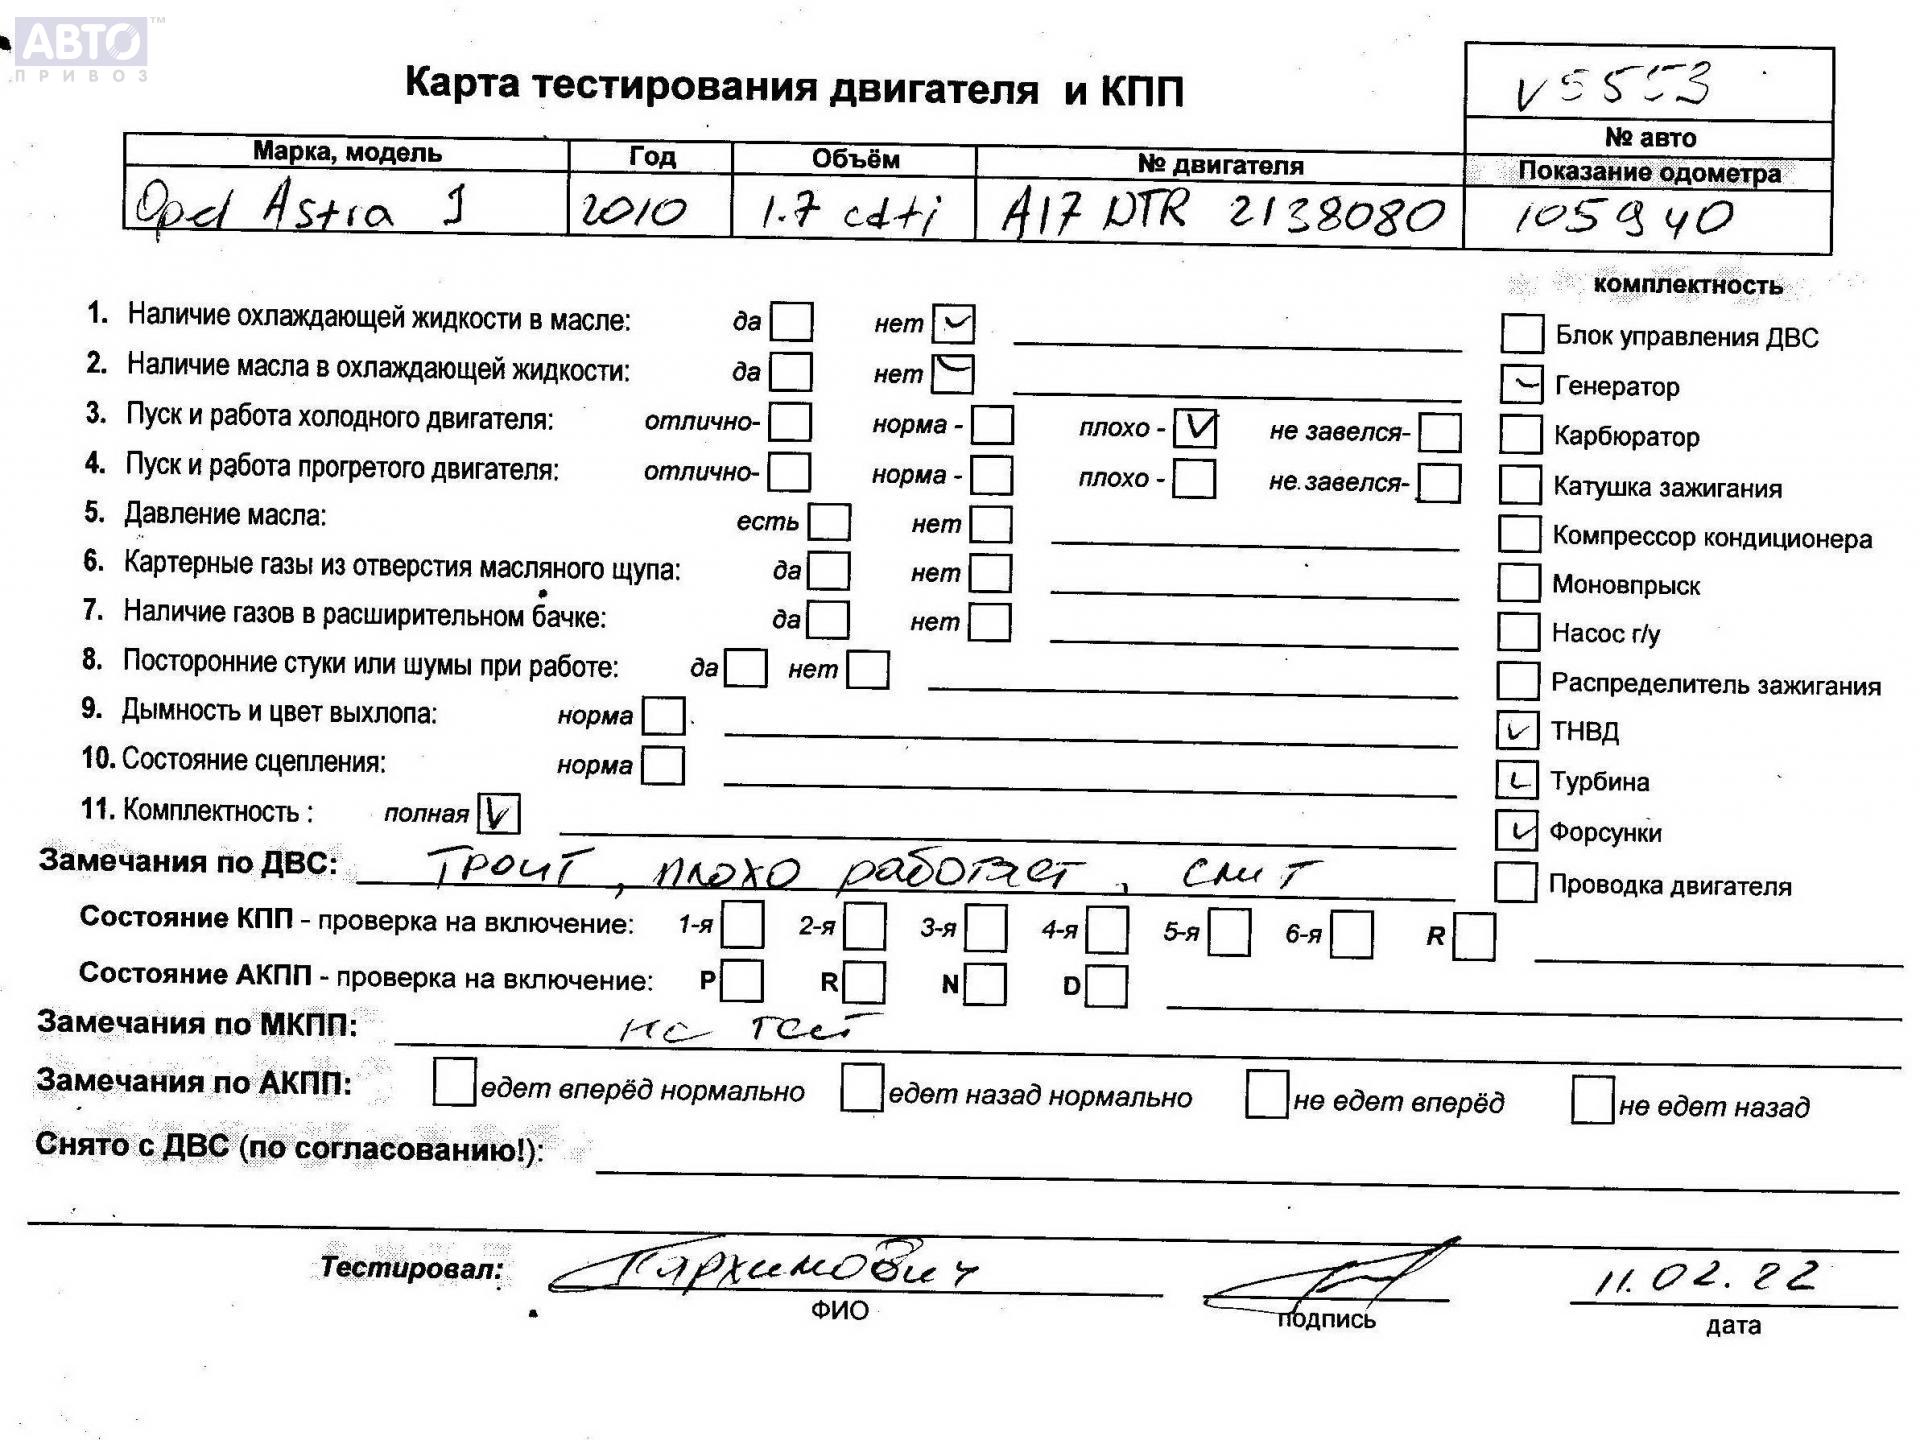 АВТО ™
ПРИВОЗ
Карта тестирования двигателя и КПП
v5553
№ авто
Марка, модель Год Объём № двигателя Показание одометра
Opel Astra J 2010 1.7 cdti A17 DTR 2138080 105940
комплектность
1. Наличие охлаждающей жидкости в масле: да нет
Блок управления ДВС
2. Наличие масла в охлаждающей жидкости: да нет
Генератор
3. Пуск и работа холодного двигателя: отлично- норма - плохо - не завелся-
Карбюратор
4. Пуск и работа прогретого двигателя: отлично- норма - плохо - не завелся-
Катушка зажигания
5. Давление масла: есть нет
Компрессор кондиционера
6. Картерные газы из отверстия масляного щупа: да нет
Моновпрыск
7. Наличие газов в расширительном бачке: да нет
Насос г/у
8. Посторонние стуки или шумы при работе: да нет
Распределитель зажигания
9. Дымность и цвет выхлопа: норма
ТНВД
10. Состояние сцепления: норма
Турбина
11. Комплектность : полная
Форсунки
Замечания по ДВС: троит, плохо работает,
Проводка двигателя
Состояние КПП - проверка на включение: 1-я 2-я 3-я 4-я 5-я 6-я R
Состояние АКПП - проверка на включение: P R N D
Замечания по МКПП: не тест
Замечания по АКПП: едет вперёд нормально едет назад нормально не едет вперёд не едет назад
Снято с ДВС (по согласованию!):
Тестировал: Пархимович 11.02.22
ФИО подпись дата